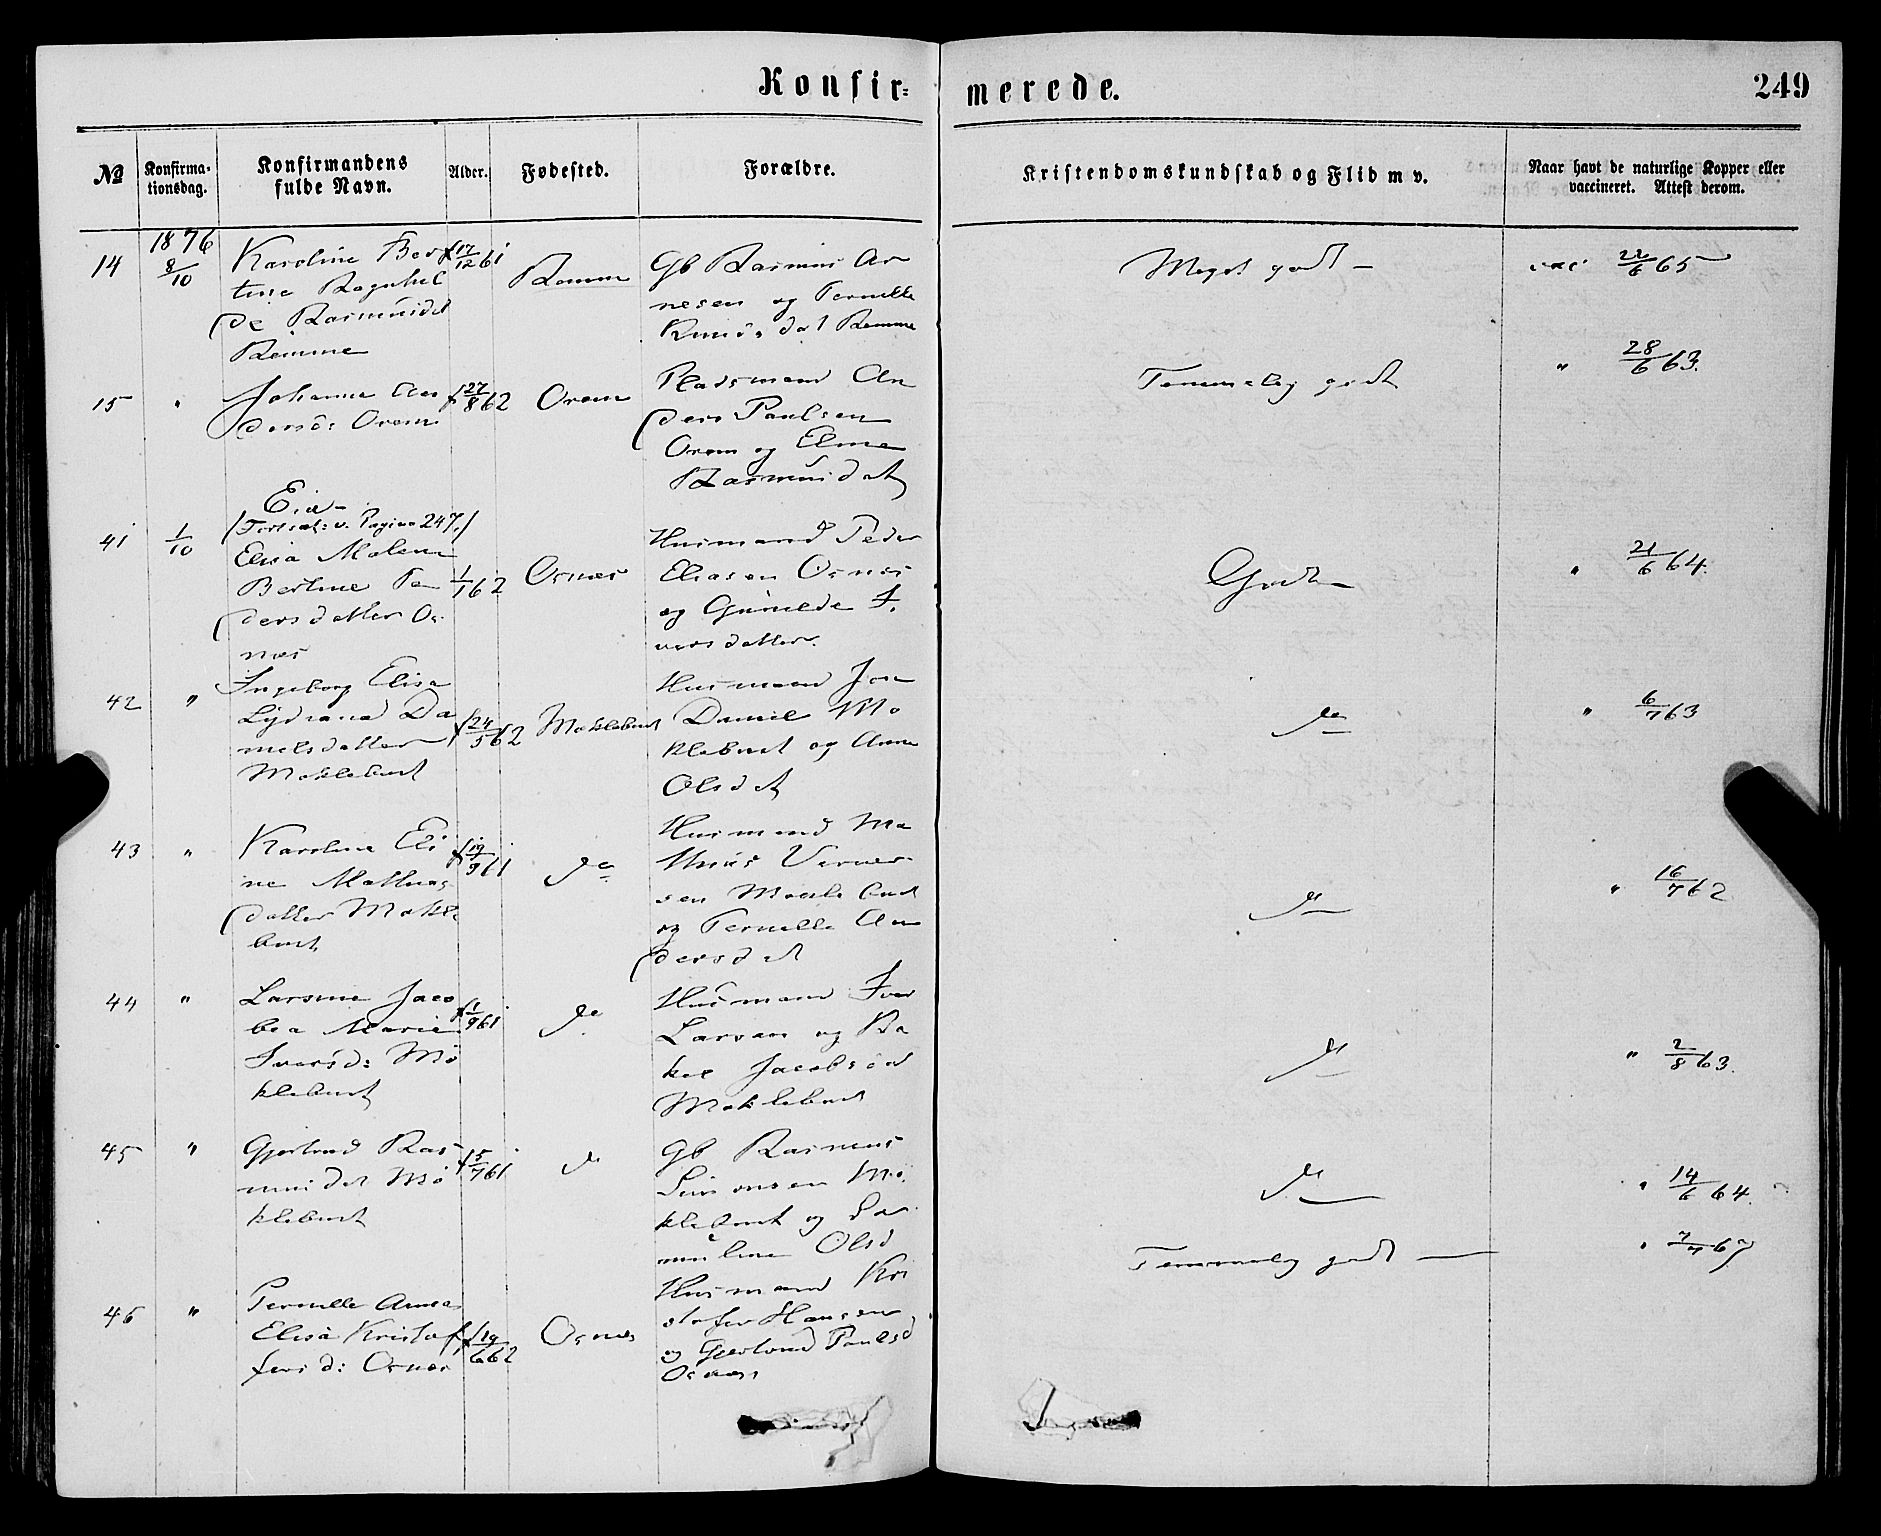 Konfir=
merede.
249
№
Konfirma-
tionsdag.
Konfirmandens
fulde Navn.
Alder.
Fødested.
Forældre.
Kristendomskundskab og Flid m v.
Naar havt de naturlige Kopper eller
vaccineret. Attest derom.
14
1876
8/10
Karoline Ber
tine Ragnhil
de Rasmusdt
Remme
f 17/12 61
Remme
Gb Rasmus Ar
nesen og Pernille
Knudsdat Remme
Meget godt –
vac 22/6 65
15
"
Johanne An
dersd: Orem
f 27/8 62
Orem
Pladsmand An
ders Paulsen
Orem og Eline
Rasmusdat
Temmelig godt
" 28/6 63.
Eid
/Fortsat: v. Pagina 247./
41
1/10
Elisa Malene
Bertine Pe
dersdatter Os
nes
1/1 62
Osnes
Husmand Peder
Eliasen Osnes
og Gunilde I
versdatter.
Godt
" 21/6 64.
42
"
Ingeborg Elisa
Lydiana Da
nielsdatter
Moklebust
f 24/5 62
Moklebust
Husmand Jon
Daniel Mo
klebust og Anne
Olsdat
do
" 6/7 63
43
"
Karoline Eli
ne Mathias
datter Mokle
bust
f 19/9 61
do
Husmand Ma
thias Verner
sen Mokle bust
og Pernille An
dersdat
do
" 16/7 62
44
"
Larsine Jaco
bea Marie
Iversd: Mo
klebust
f 1/9 61
do
Husmand Iver
Larsen og Ra
kel Jacobsdt
Moklebust
do
" 2/8 63.
45
"
Gjertrud Ras
musdat Mo
klebust
f 5/7 61
do
Gb Rasmus
Simonsen Mo
klebust og
Olsd
do
" 14/6 64.
46
"
Pernille Annea
Elisa Kristof
fersd: Osnes
f 19/6 62
Osnes
Husmand Kri
stofer Hansen
og Gjertrud Paulsd
Osnes
Temmelig godt
" 7/7 67